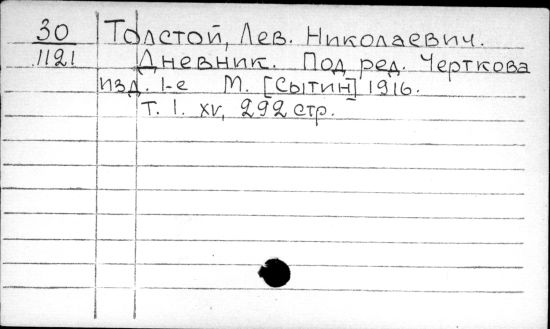 30 Толстой, Лев. Николаевич.
1121 Дневник. Под ред. Черткова
изд. 1-е М. [Сытин] 1916.
т. 1. xv, 292 стр.